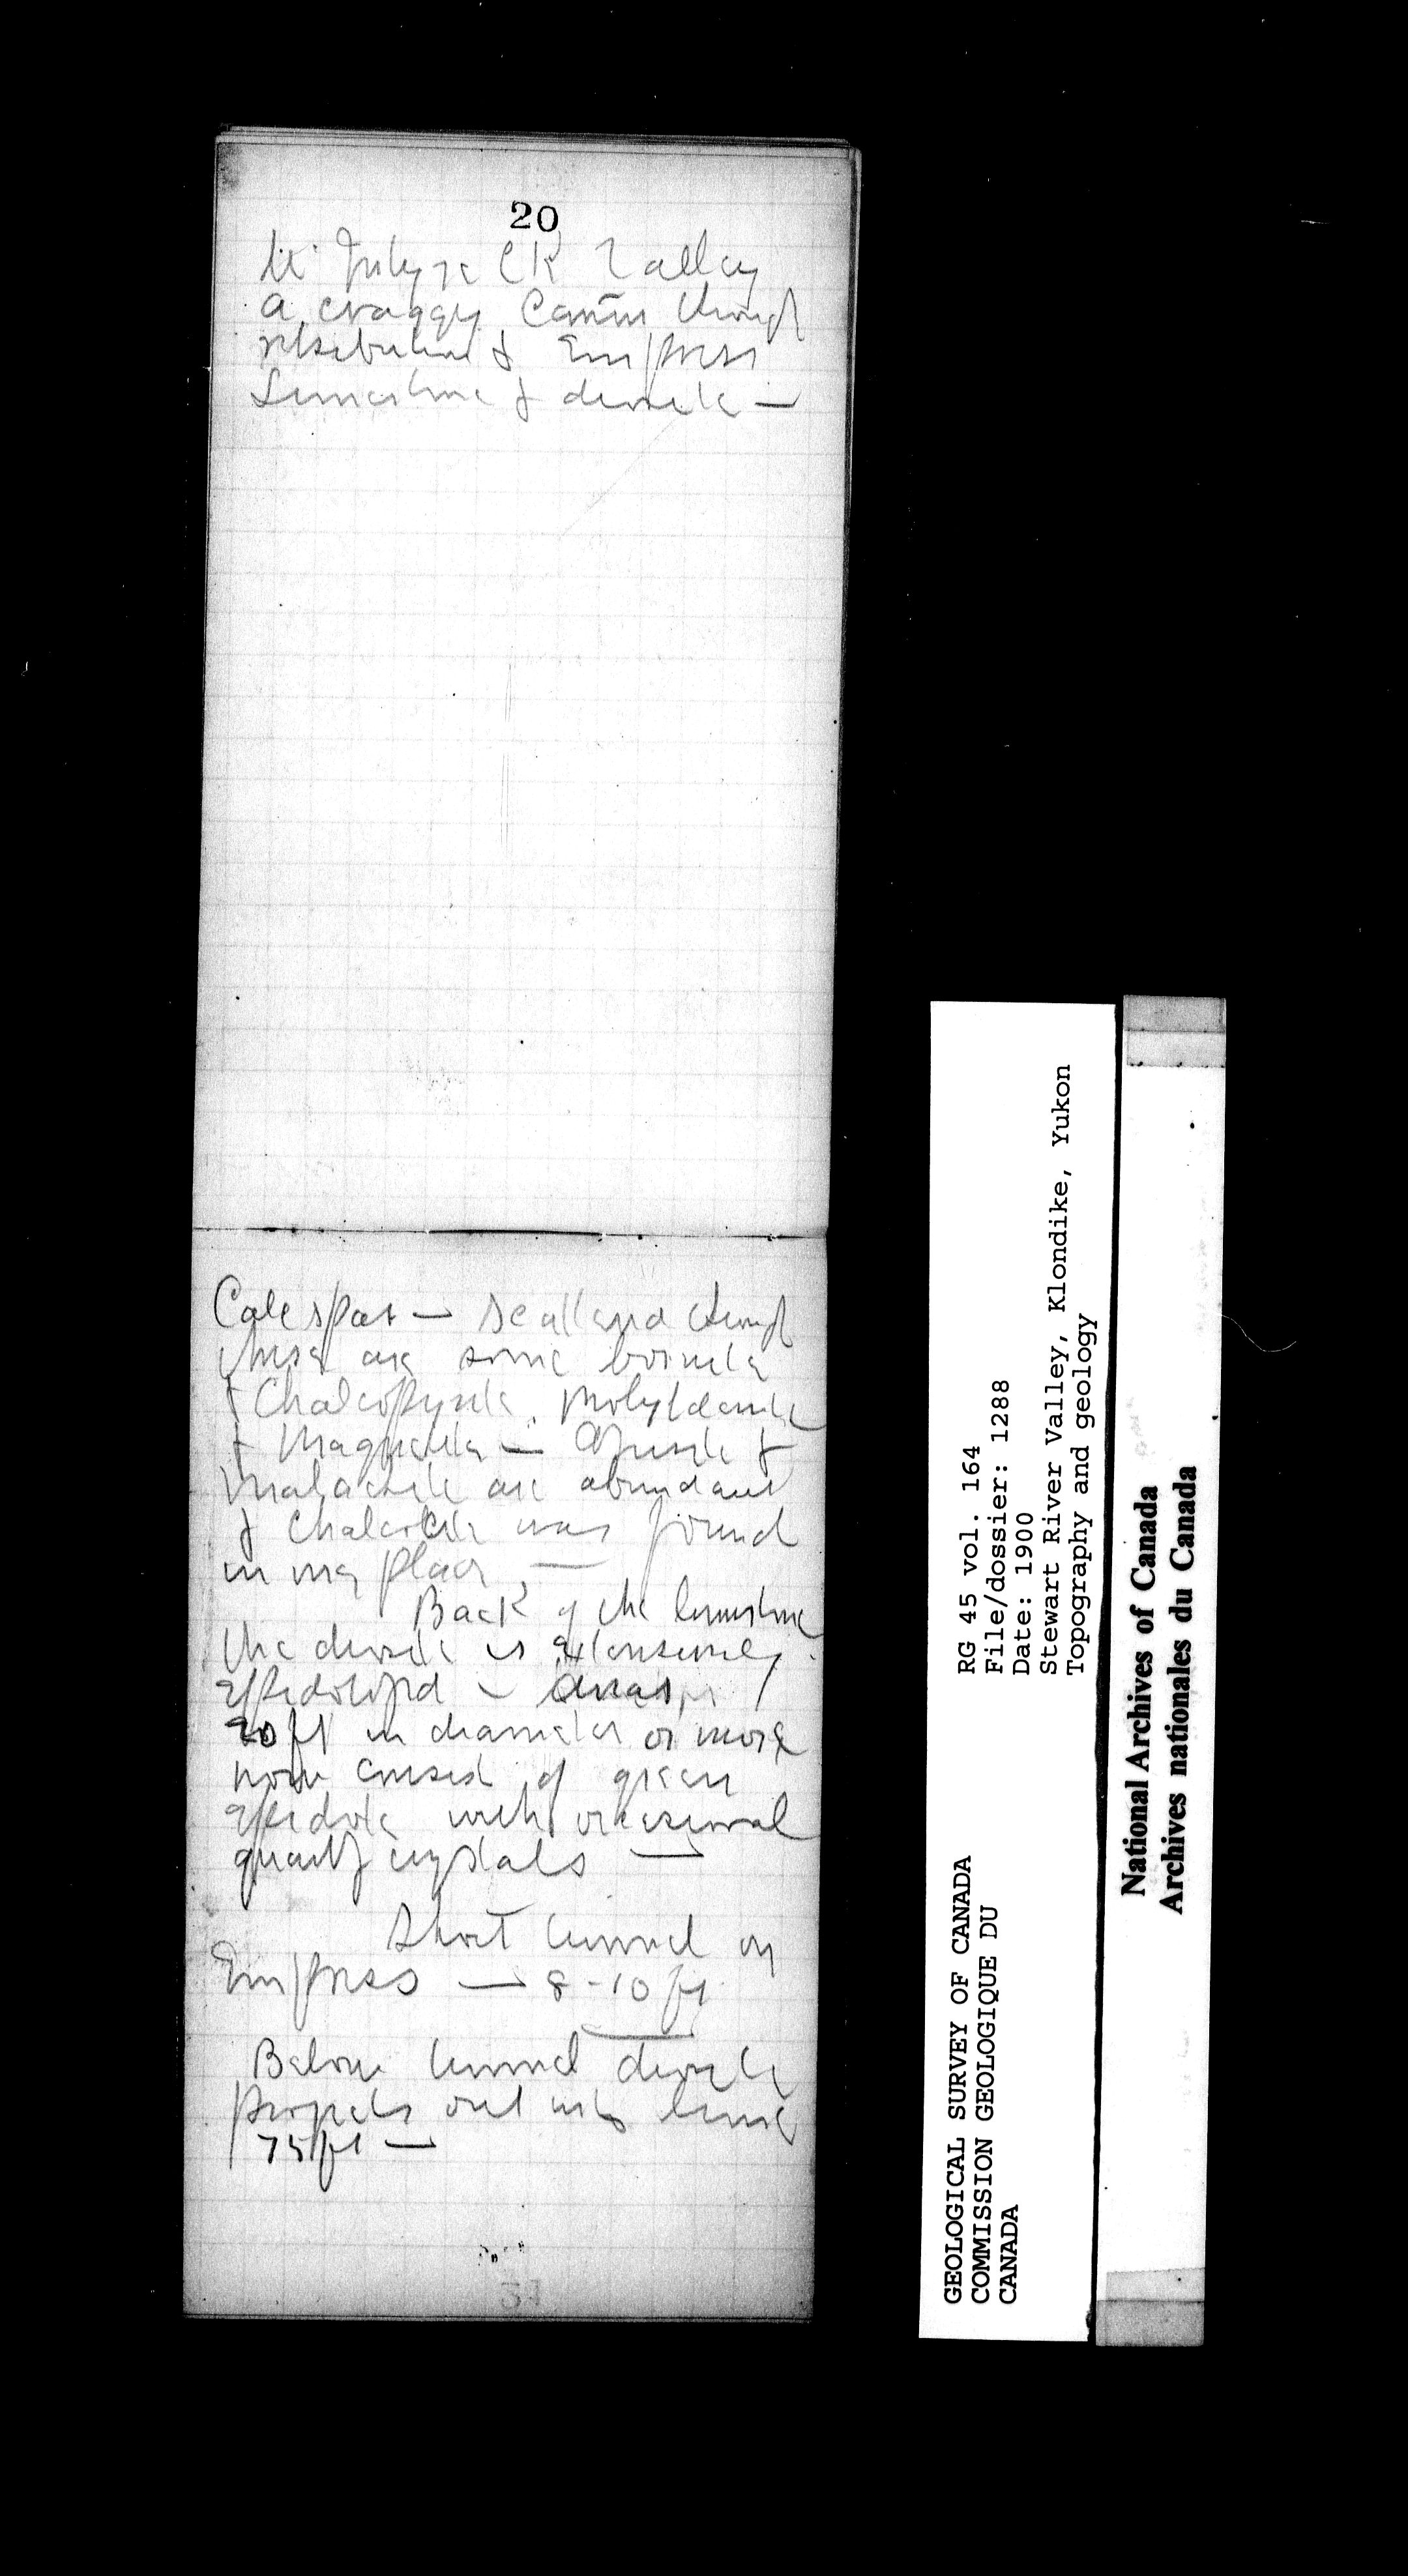 20
CK Valley
a craggy Canon through
& Empress
Limestone & diorite —
Calcspar — scattered through
these are some bornite
& Chalcopyrite, Molybdenite
& Magnetite — Azurite &
Malachite are abundant
& Chalcocite was found
in one place —
Back of the limestone
the diorite is extensively
epidotized — areas
20 ft in diameter or more
now consist of green
epidote with occasional
quartz crystals —
Short tunnel on
Empress — 8-10 ft
Below tunnel diorite
projects out into lime
75 ft —
GEOLOGICAL SURVEY OF CANADA
COMMISSION GEOLOGIQUE DU
CANADA
RG 45 vol. 164
File/dossier: 1288
Date: 1900
Stewart River Valley, Klondike, Yukon
Topography and geology
National Archives of Canada
Archives nationales du Canada